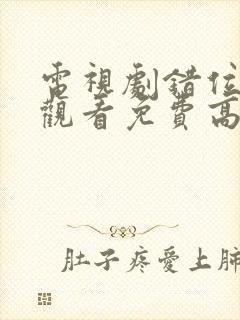 電視劇錯位
觀看免費高
肚子疼愛上肺